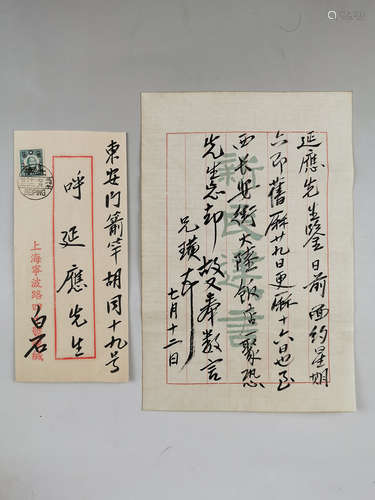 延應先生鉴日前面约星期
六即舊厤廿九日更厤十六日也至
西长安街大陸飯店聚恐
先生忘却故又奉数言
兄璜
七月十二日
新民
言
東安门箭竿胡同十九号
呼延應先生
上海寧波路四
白石